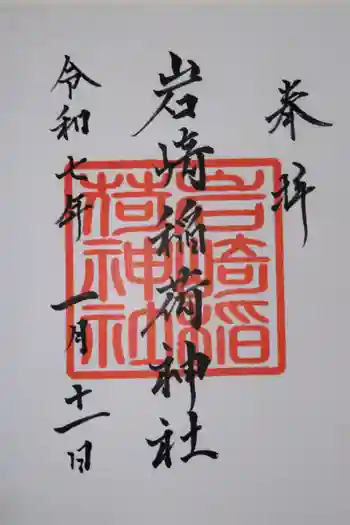 奉拝
岩崎稲荷神社
令和七年一月十一日
岩崎稲
荷神社